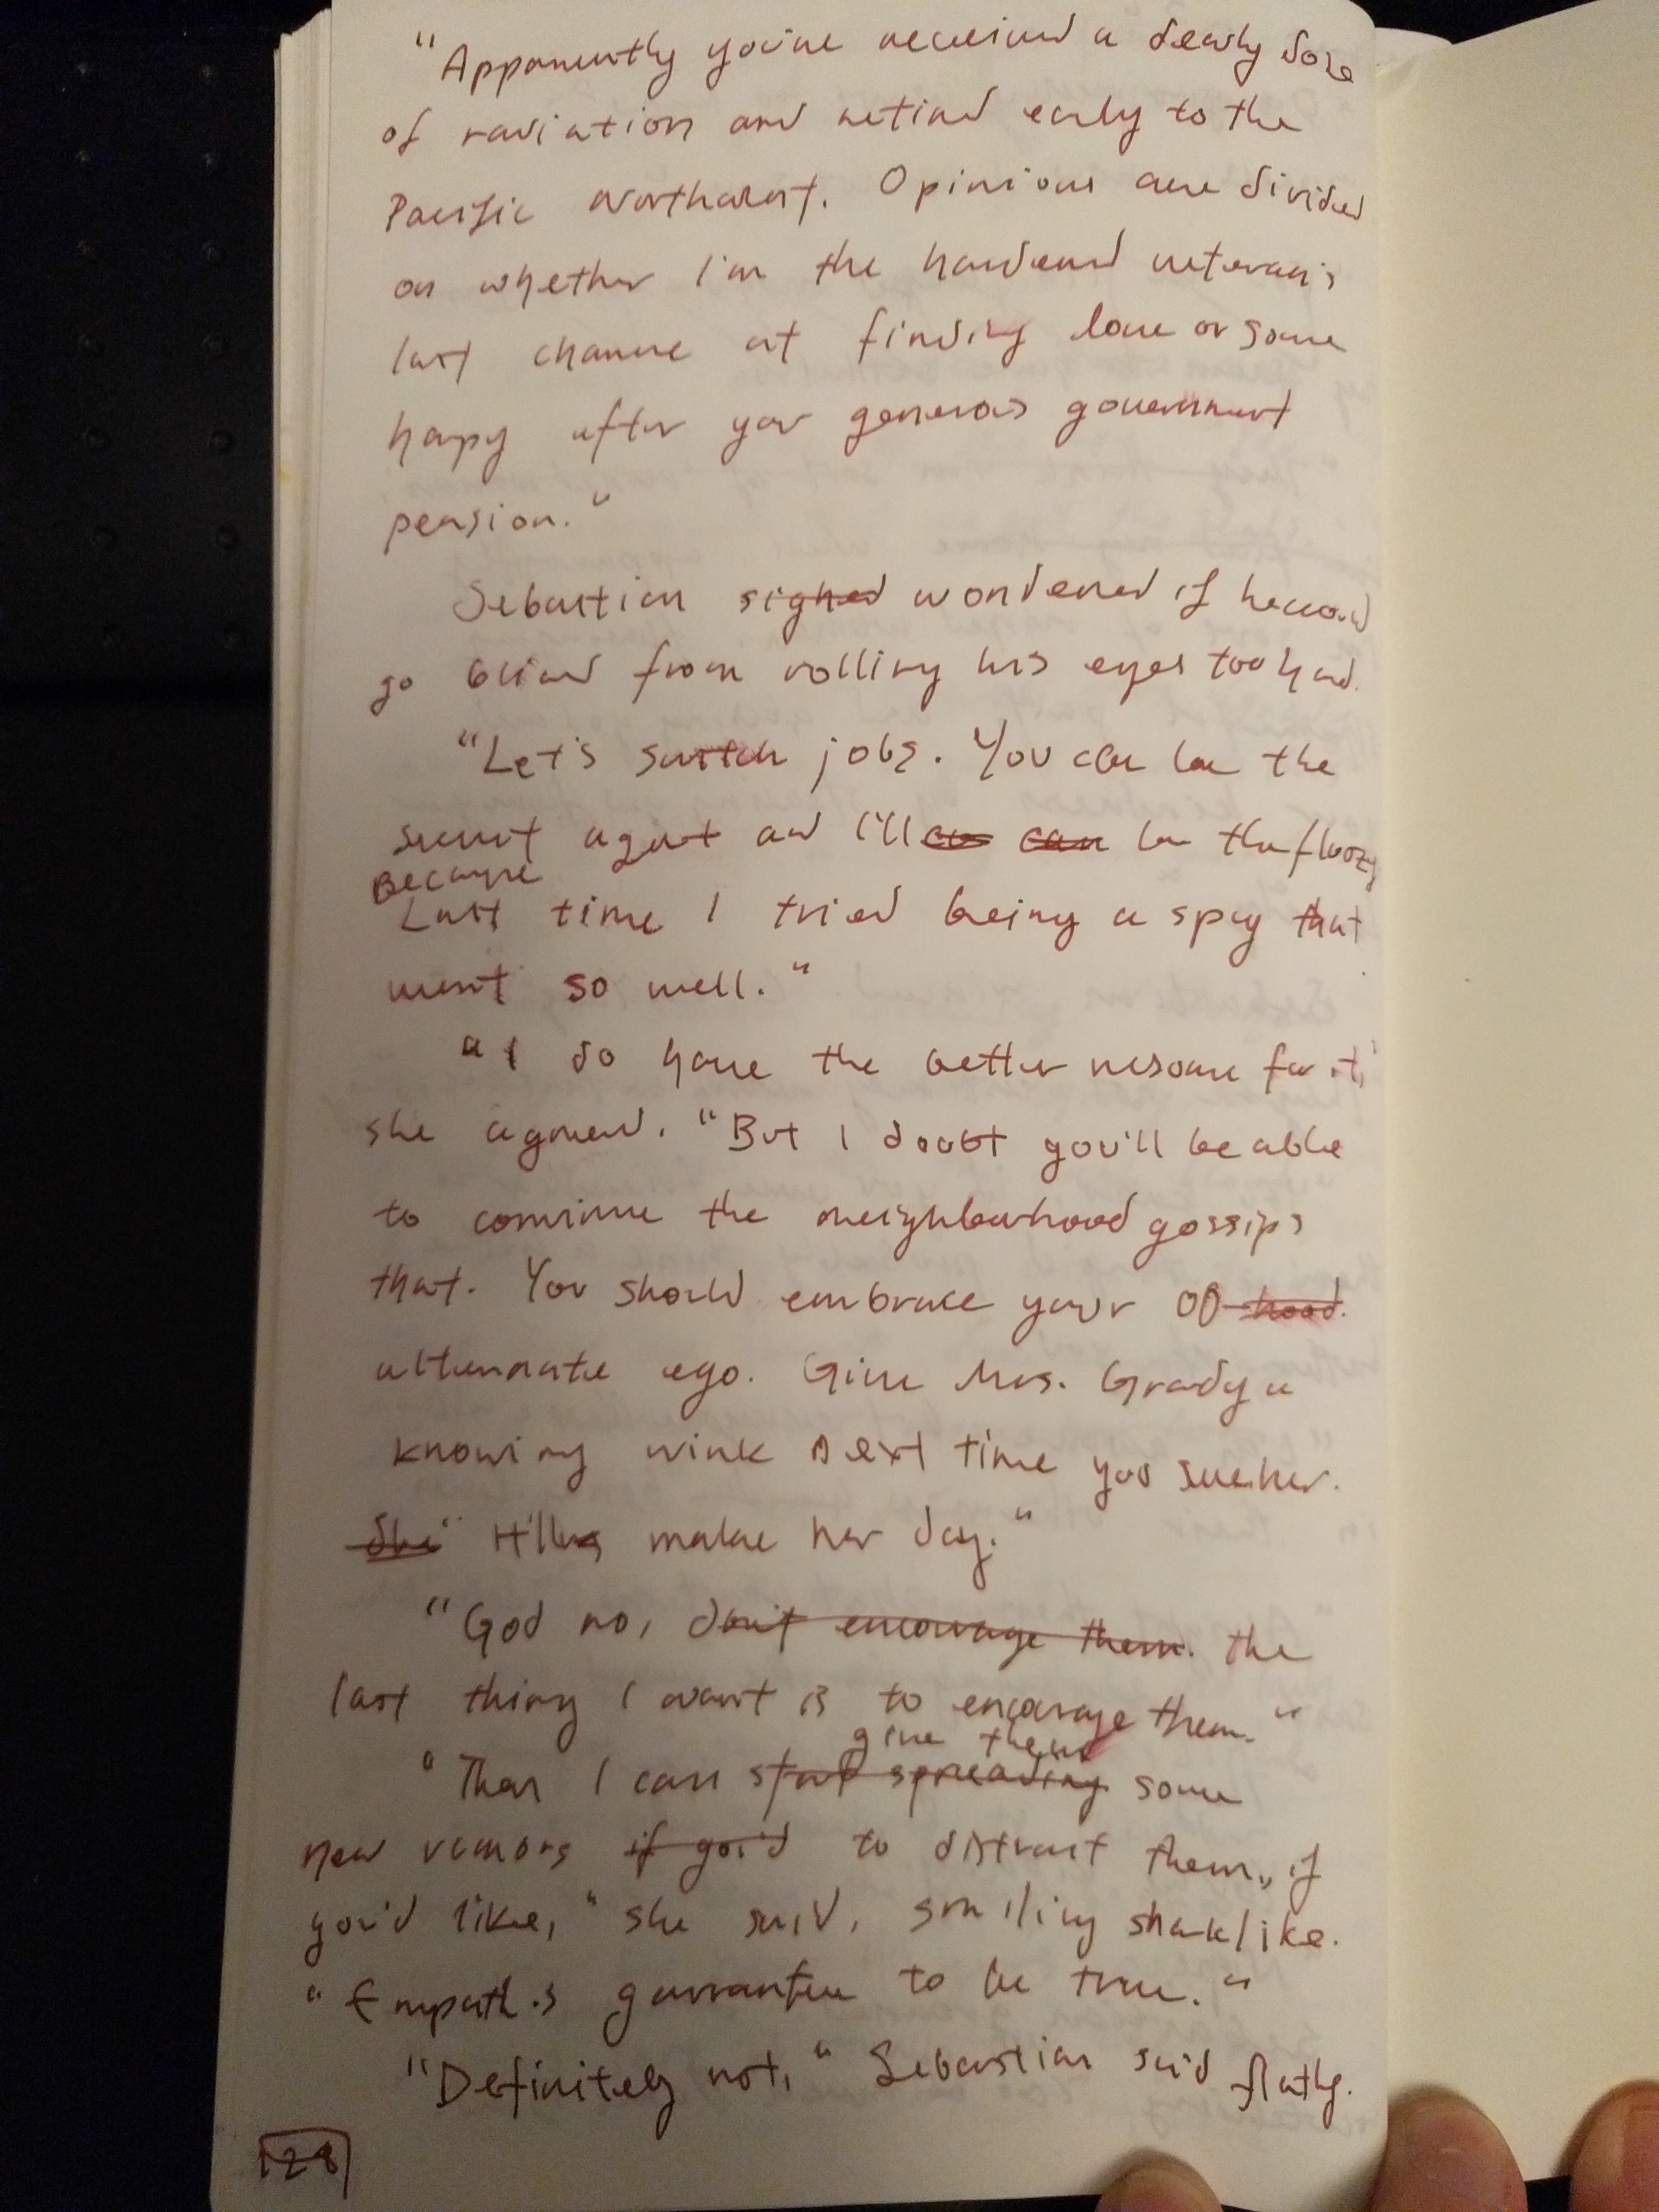 "Apparently you've received a deadly dose
of radiation and retired early to the
Pacific Northwest. Opinions are divided
on whether I'm the hardened veteran's
last chance at finding love or some
harpy after your generous government
pension."
Sebastian sighed wondered if he could
go blind from rolling his eyes too hard.
"Let's switch jobs. You can be the
secret agent and I'll can be the floozy
Because
Last time I tried being a spy that
went so well."
"I do have the better resume for it,"
she agreed. "But I doubt you'll be able
to convince the neighbourhood gossips
that. You should embrace your 00-hood.
alternate ego. Give Mrs. Grady a
knowing wink next time you see her.
She It'll make her day."
"God no, don't encourage them. the
last thing I want is to encourage them."
give them
"Then I can start spreading some
new rumors if you'd to distract them, if
you'd like," she said, smiling sharklike.
"Empath's guarantee to be true."
"Definitely not," Sebastian said flatly.
128